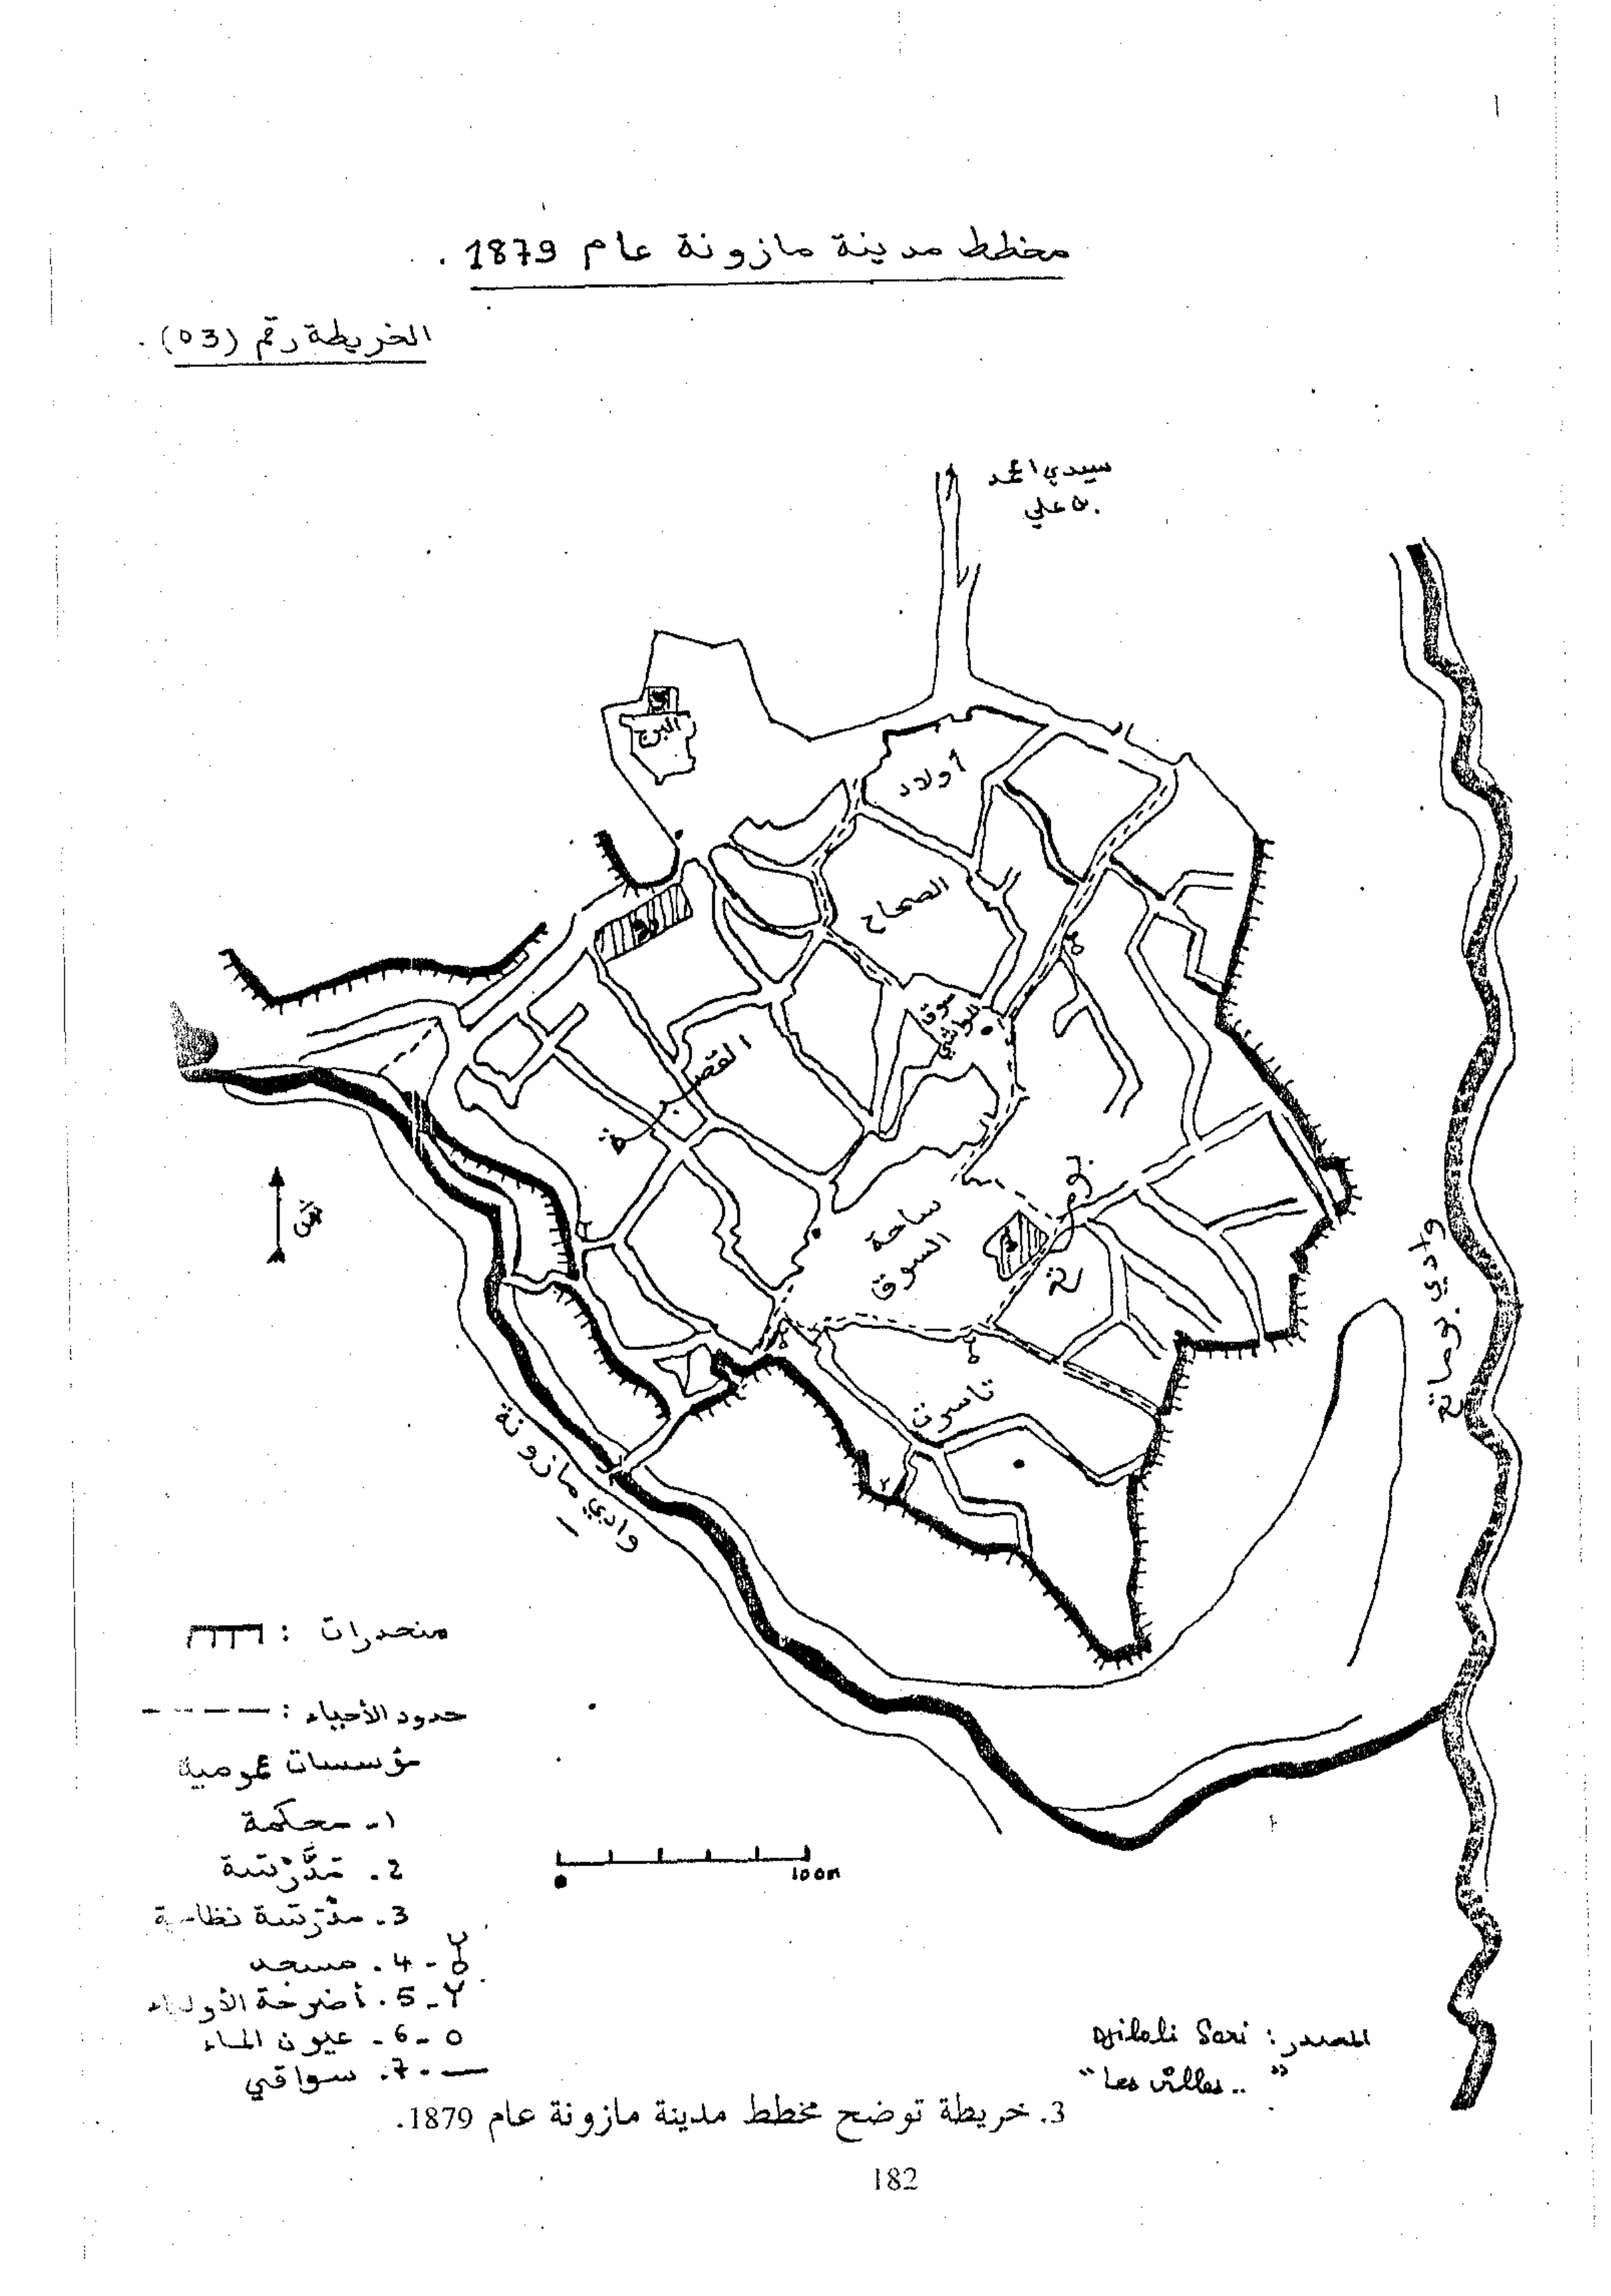 مخطط مدينة مازونة عام 1879 .
الخريطة رقم (03) .
سيدي امحمد
بن علي
البرج
أولاد
الصحاح
سوق
القصبة
ساحة
السوق
تاسرت
وادي مازونة
وادي بوماتة
منحدرات :
حدود الأحياء :
مؤسسات عمومية
1- محكمة
2. مدرسة
3. مدرسة نظامية
4. مسجد
5. أضرحة الأولياء
6- عيون الماء
7. سواقي
100m
المصدر : Djilali Sari
"Les villes.. "
3. خريطة توضح مخطط مدينة مازونة عام 1879.
182